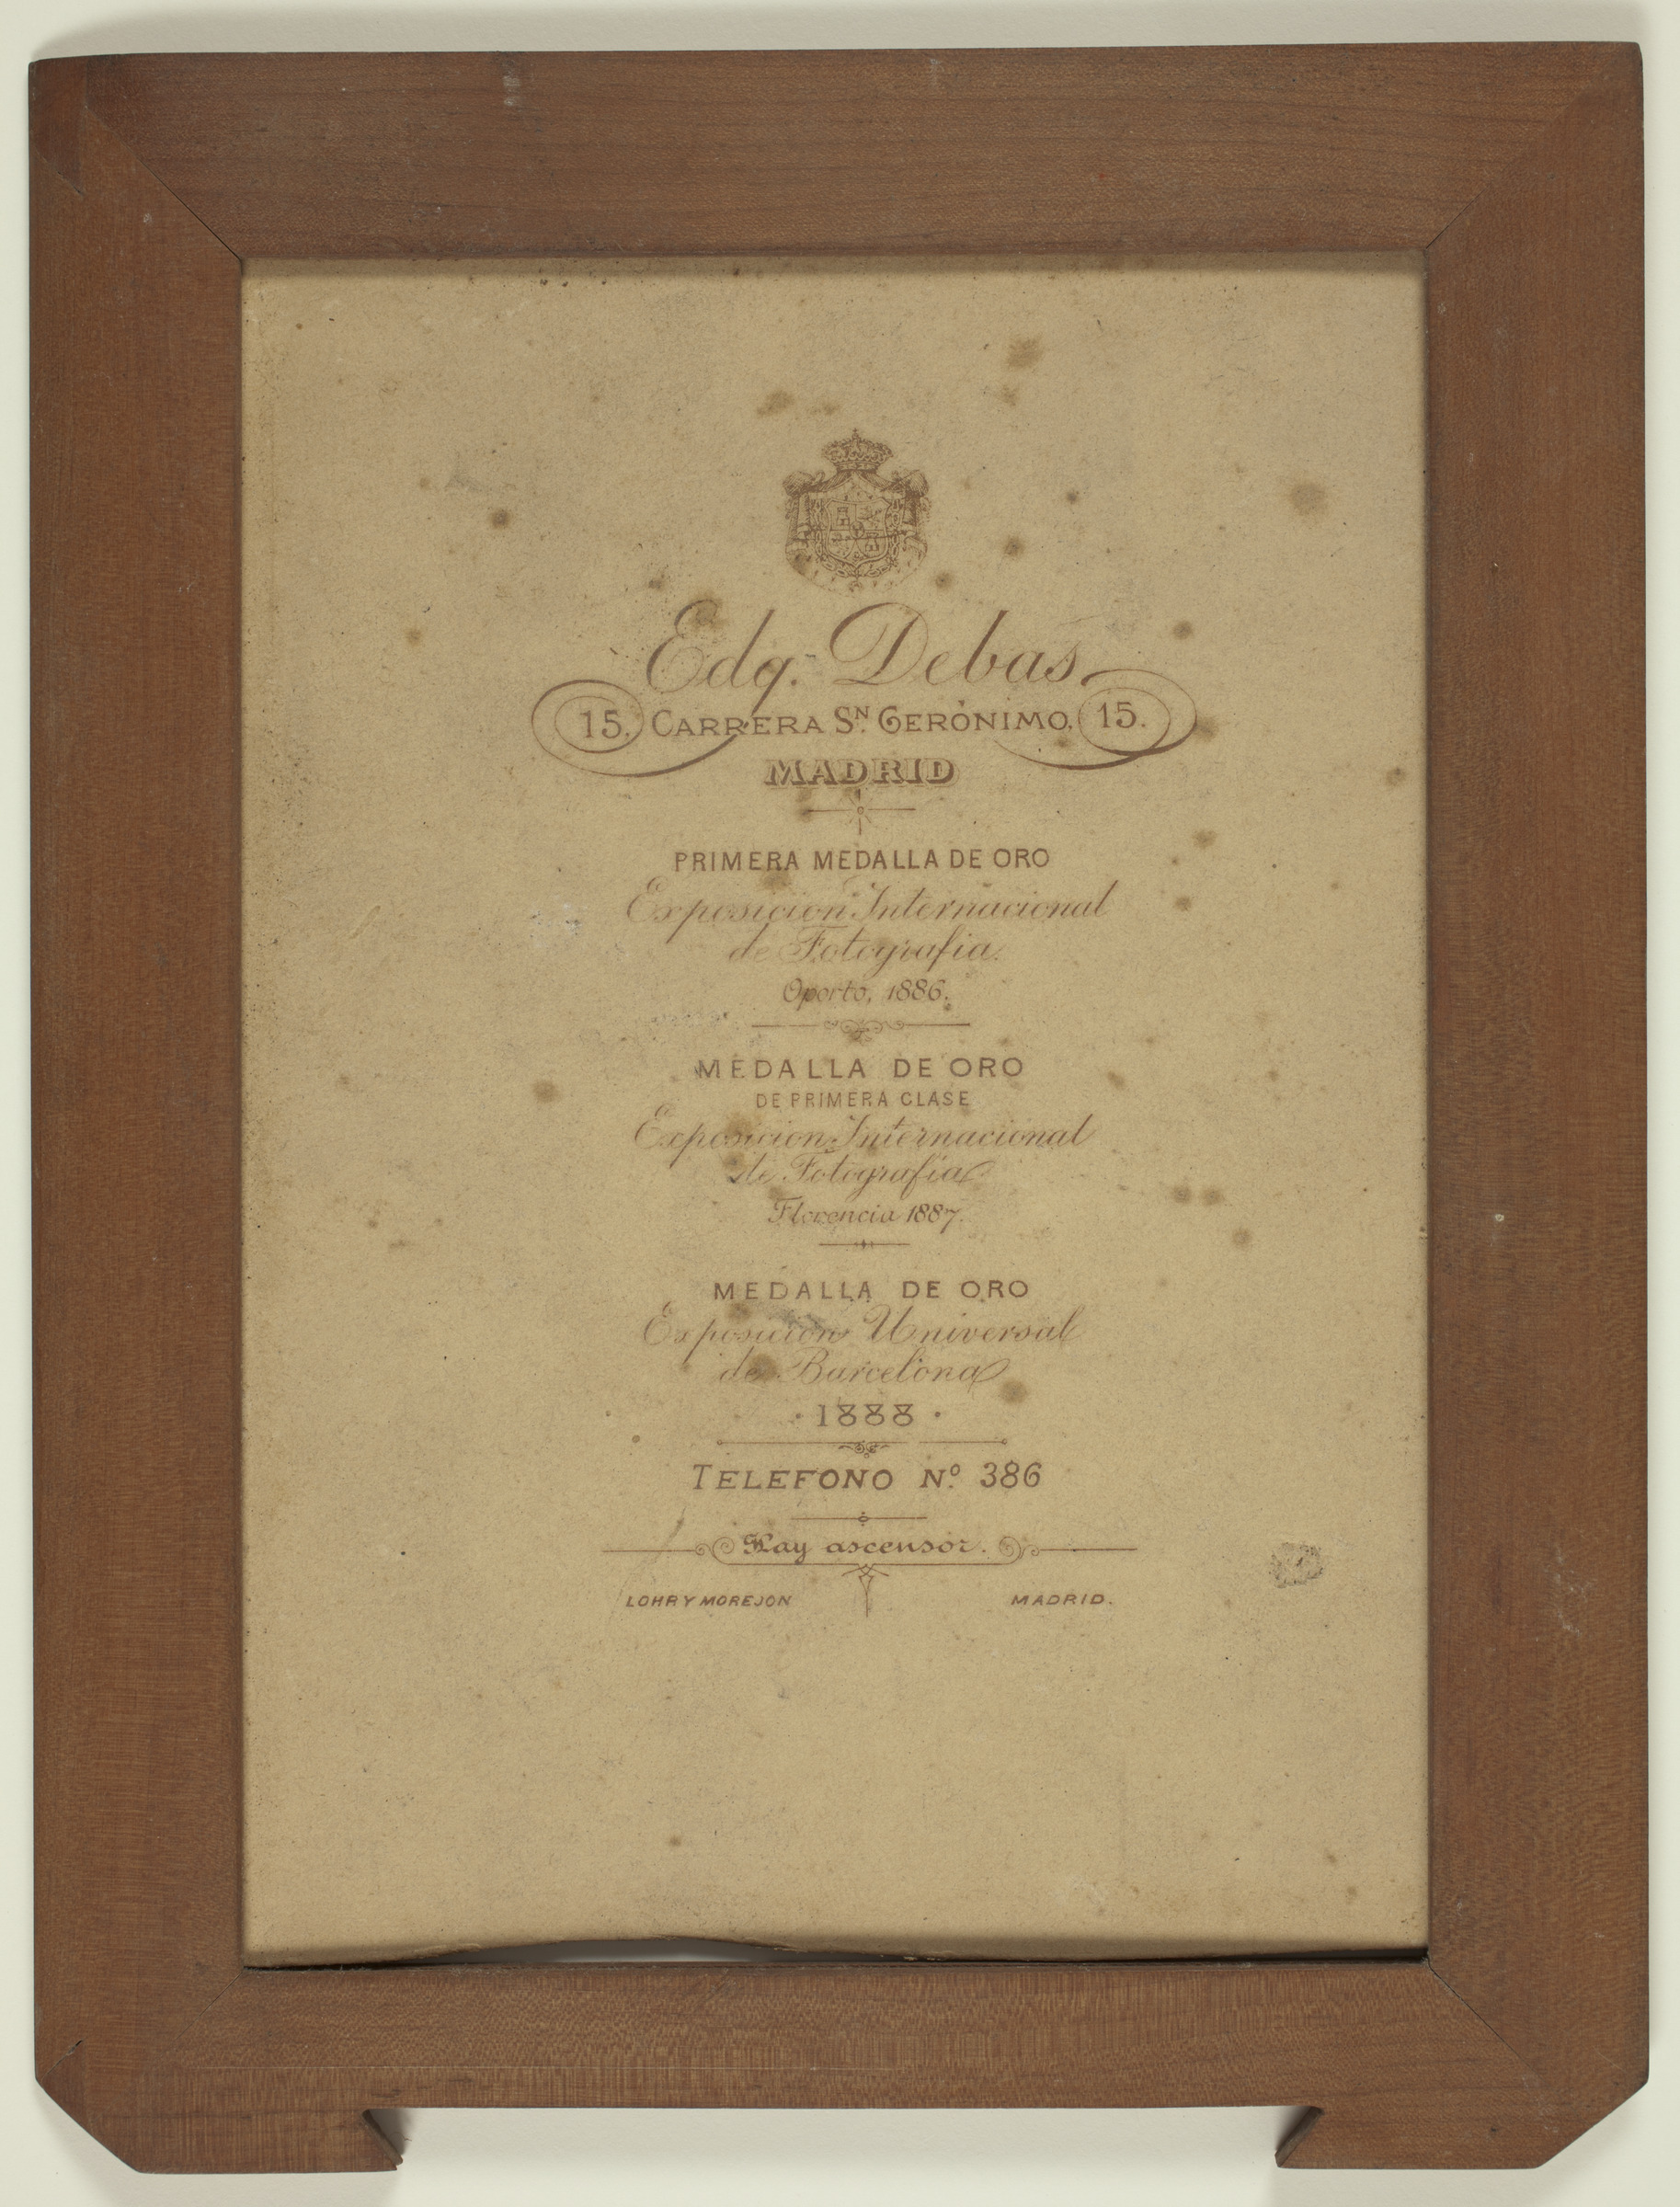 Edg. Debas
15. CARRERA SN. GERÓNIMO. 15.
MADRID
PRIMERA MEDALLA DE ORO
Exposicion Internacional
de Fotografia.
Oporto, 1886.
MEDALLA DE ORO
DE PRIMERA CLASE
Exposicion Internacional
de Fotografía
Florencia 1887.
MEDALLA DE ORO
Exposicion Universal
de Barcelona
· 1888 ·
TELEFONO Nº. 386
Hay ascensor.
LOHR Y MOREJON MADRID.